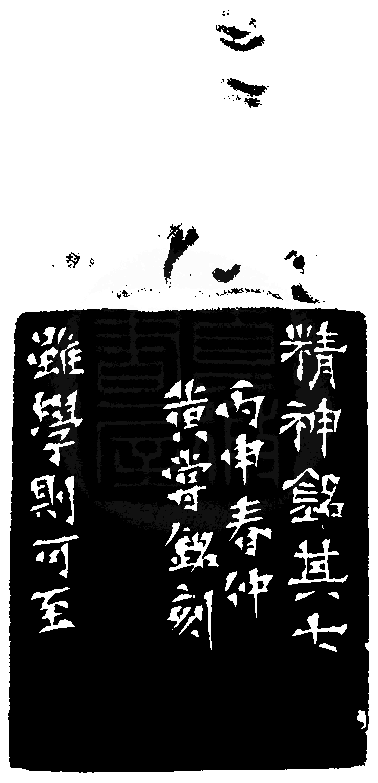 精神銘其七
丙申春仲
黄嘗銘刻
雖學則可至